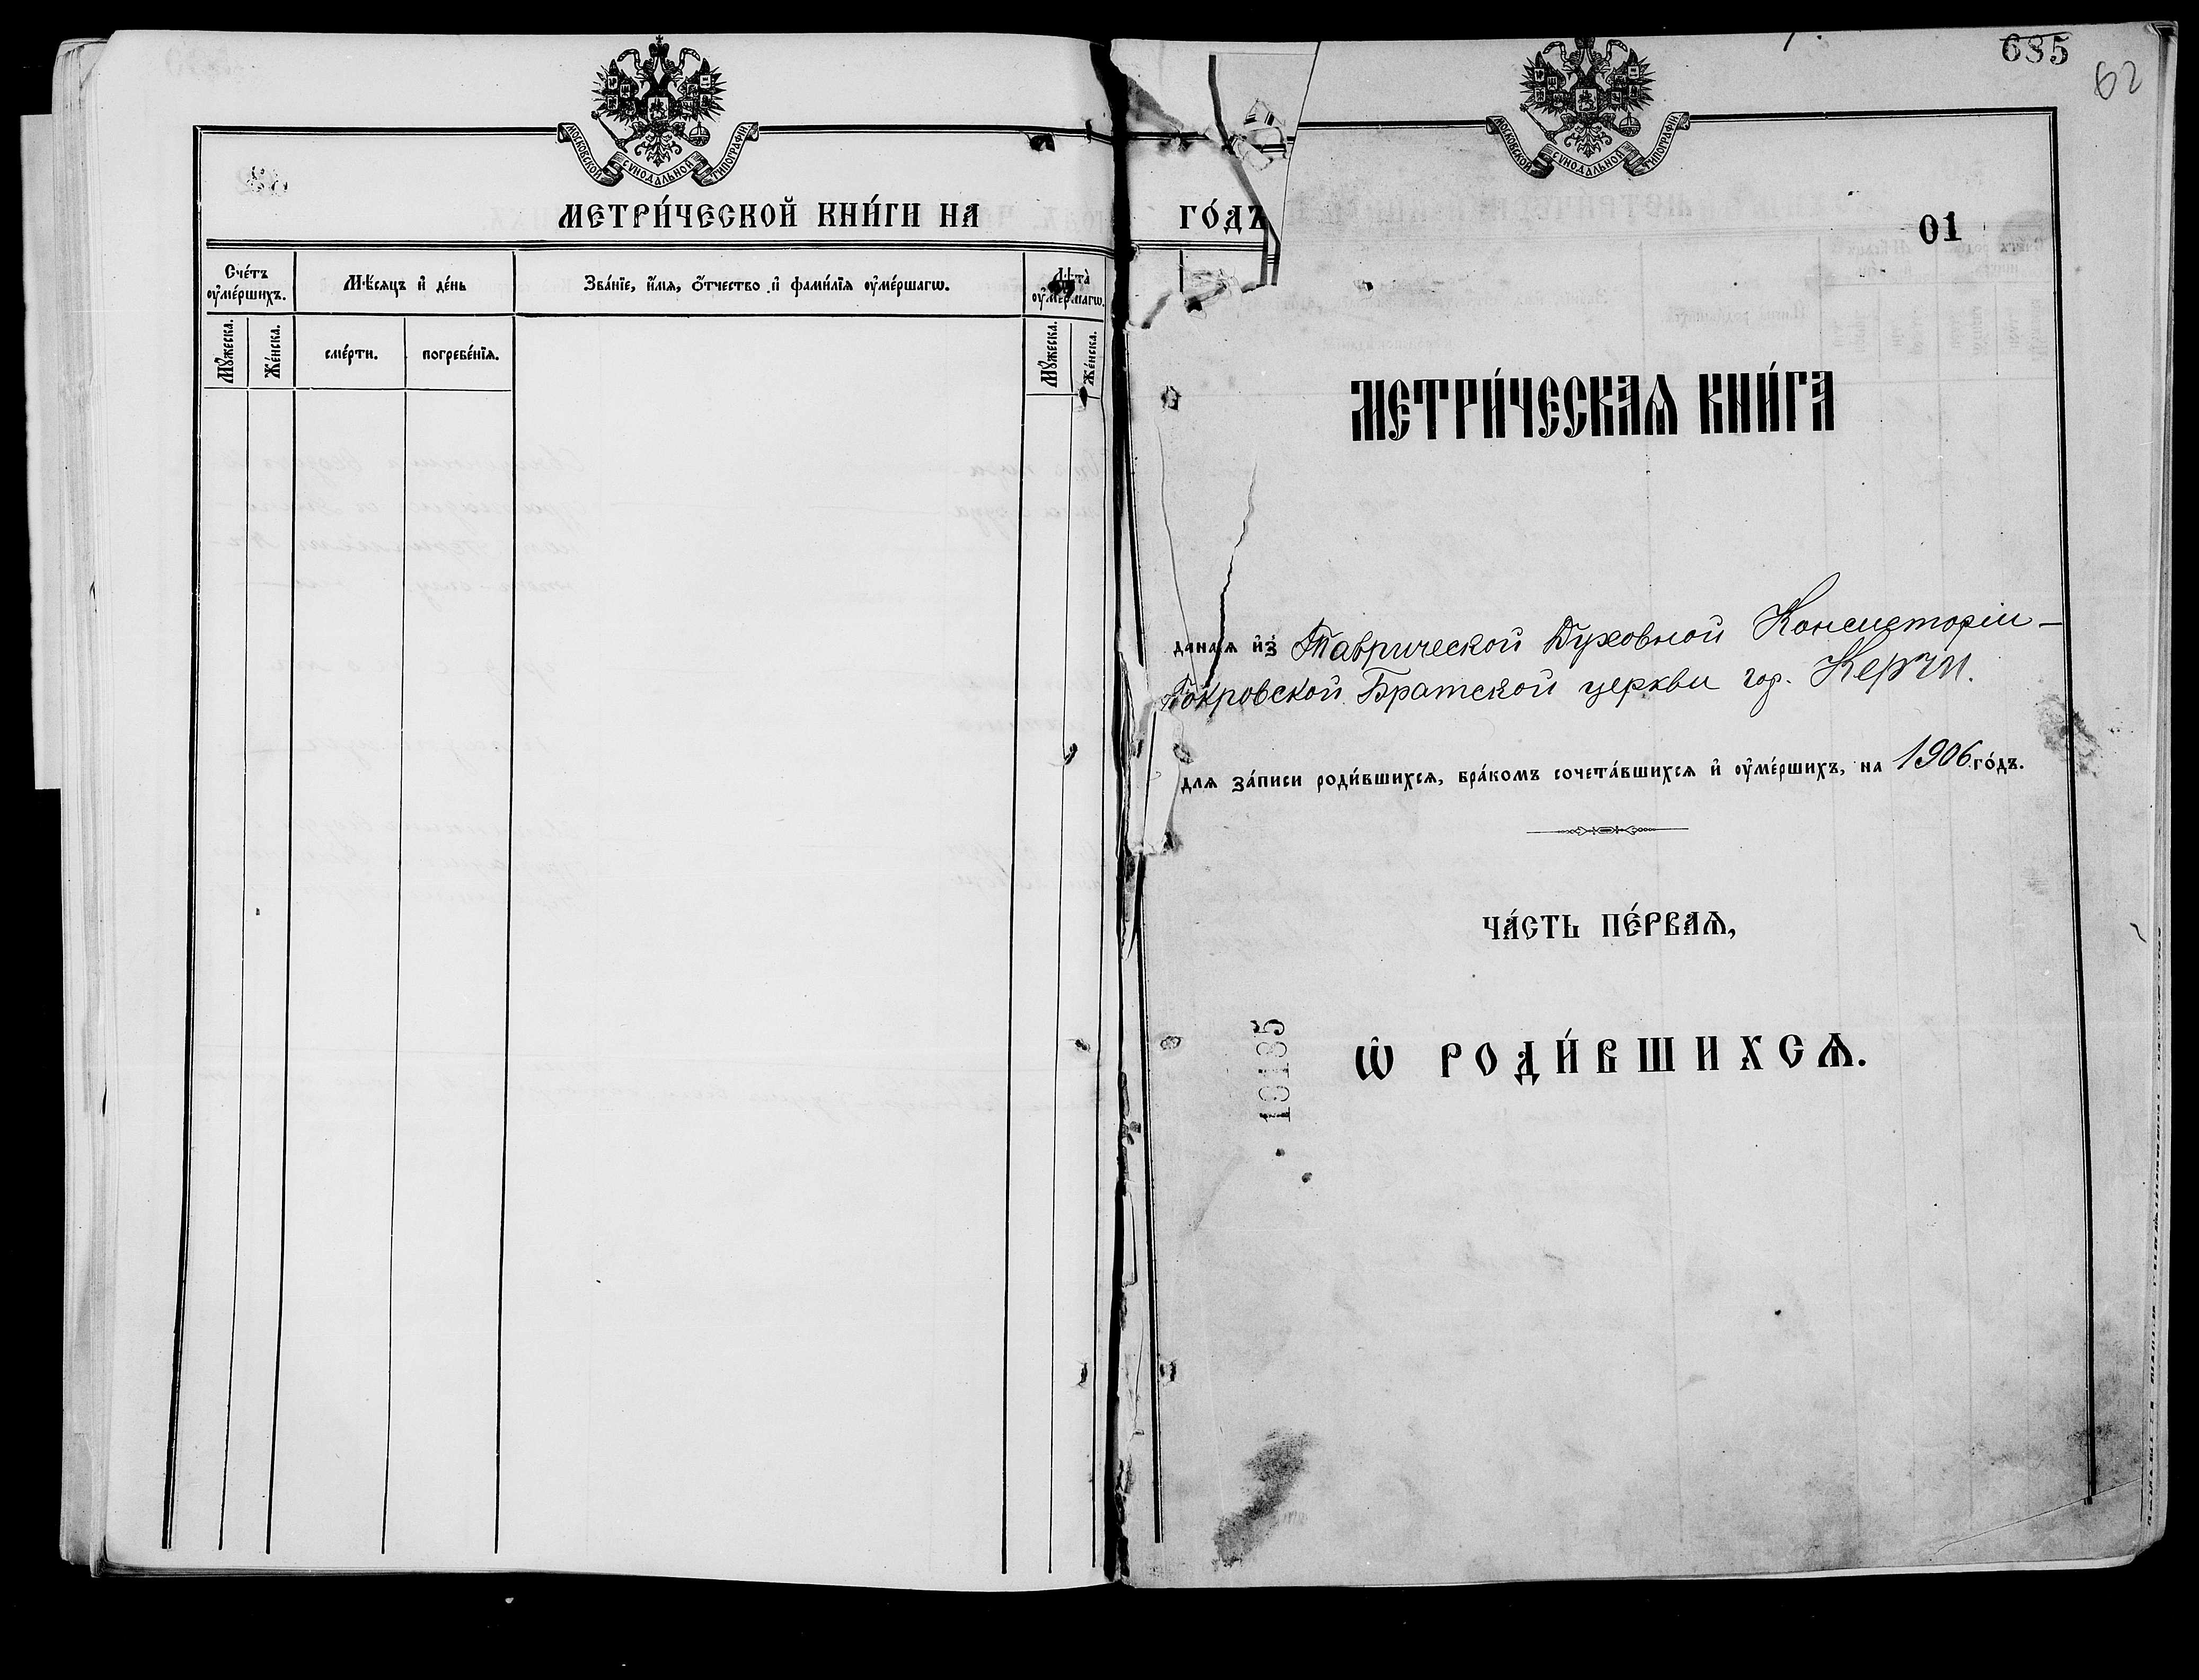 МОСКОВСКОЙ СѴНОДАЛЬНОЙ ТИПОГРАФІИ
МЕТРИ́ЧЕСКОЙ КНИ́ГИ НА ГО́ДЪ
Сче́тъ ᲂу҆ме́ршихъ.
Мѣ́сяцъ и҆ де́нь
Зва́нїе, и҆́мѧ, ѻ҆́тчество и҆ фами́лїѧ ᲂу҆ме́ршагѡ.
Лѣта̀ ᲂу҆ме́ршагѡ.
Мꙋ́жеска.
Же́нска.
сме́рти.
погребе́нїѧ.
Мꙋ́жеска.
Же́нска.
685
62
МОСКОВСКОЙ СѴНОДАЛЬНОЙ ТИПОГРАФІИ
01
МЕТРИ́ЧЕСКАѦ КНИ́ГА
данаѧ и҆з̾ Таврической Духовной Консисторіи—
Покровской Братской церкви гор. Керчи.
длѧ за́писи роди́вшихсѧ, бра́комъ сочета́вшихсѧ и҆ ᲂу҆ме́ршихъ, на 1906 го́дъ.
ЧА́СТЬ ПЕ́РВАѦ,
Ѽ РОДИ́ВШИХСѦ.